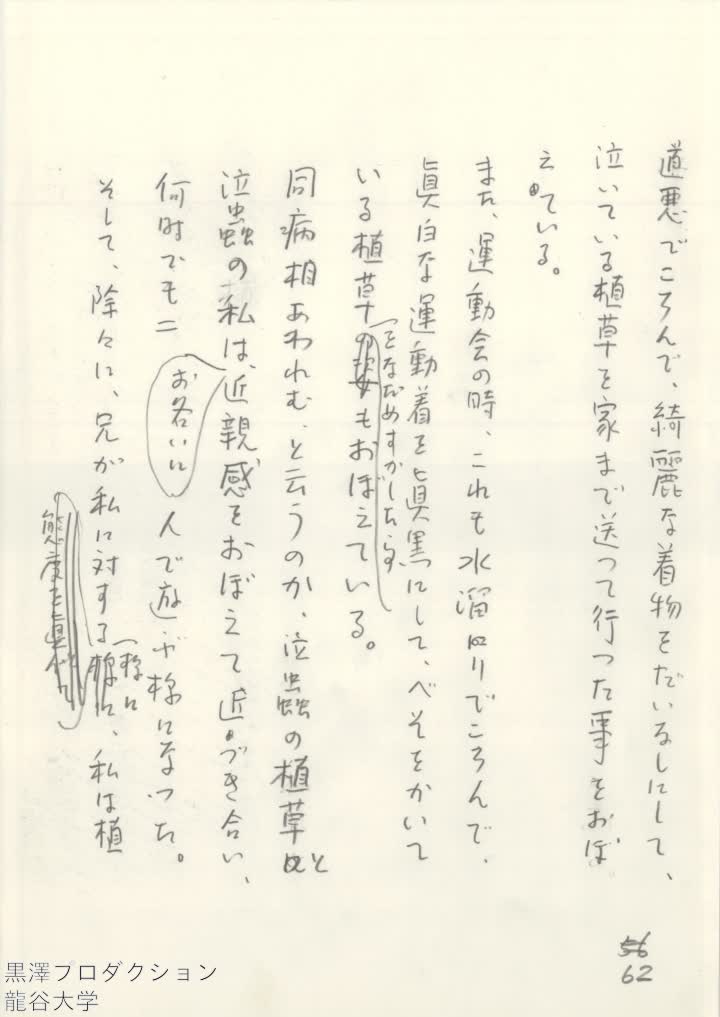 道悪でころんで、綺麗な着物をだいなしにして、
泣いている植草を家まで送って行った事をおぼ
えている。
また、運動会の時、これも水溜りでころんで、
眞白な運動着を眞黒にして、べそをかいて
いる植草の姿もおぼえている。
をなだめすかした
同病相あわれむ、と云うのか、泣虫の植草と
泣蟲の私は、近親感をおぼえて近づき合い、
お各いに
何時でも二人で遊ぶ様になった。
そして、除々に、兄が私に対する様に、私は植
様に
態度を眞似
56
62
黒澤プロダクション
龍谷大学